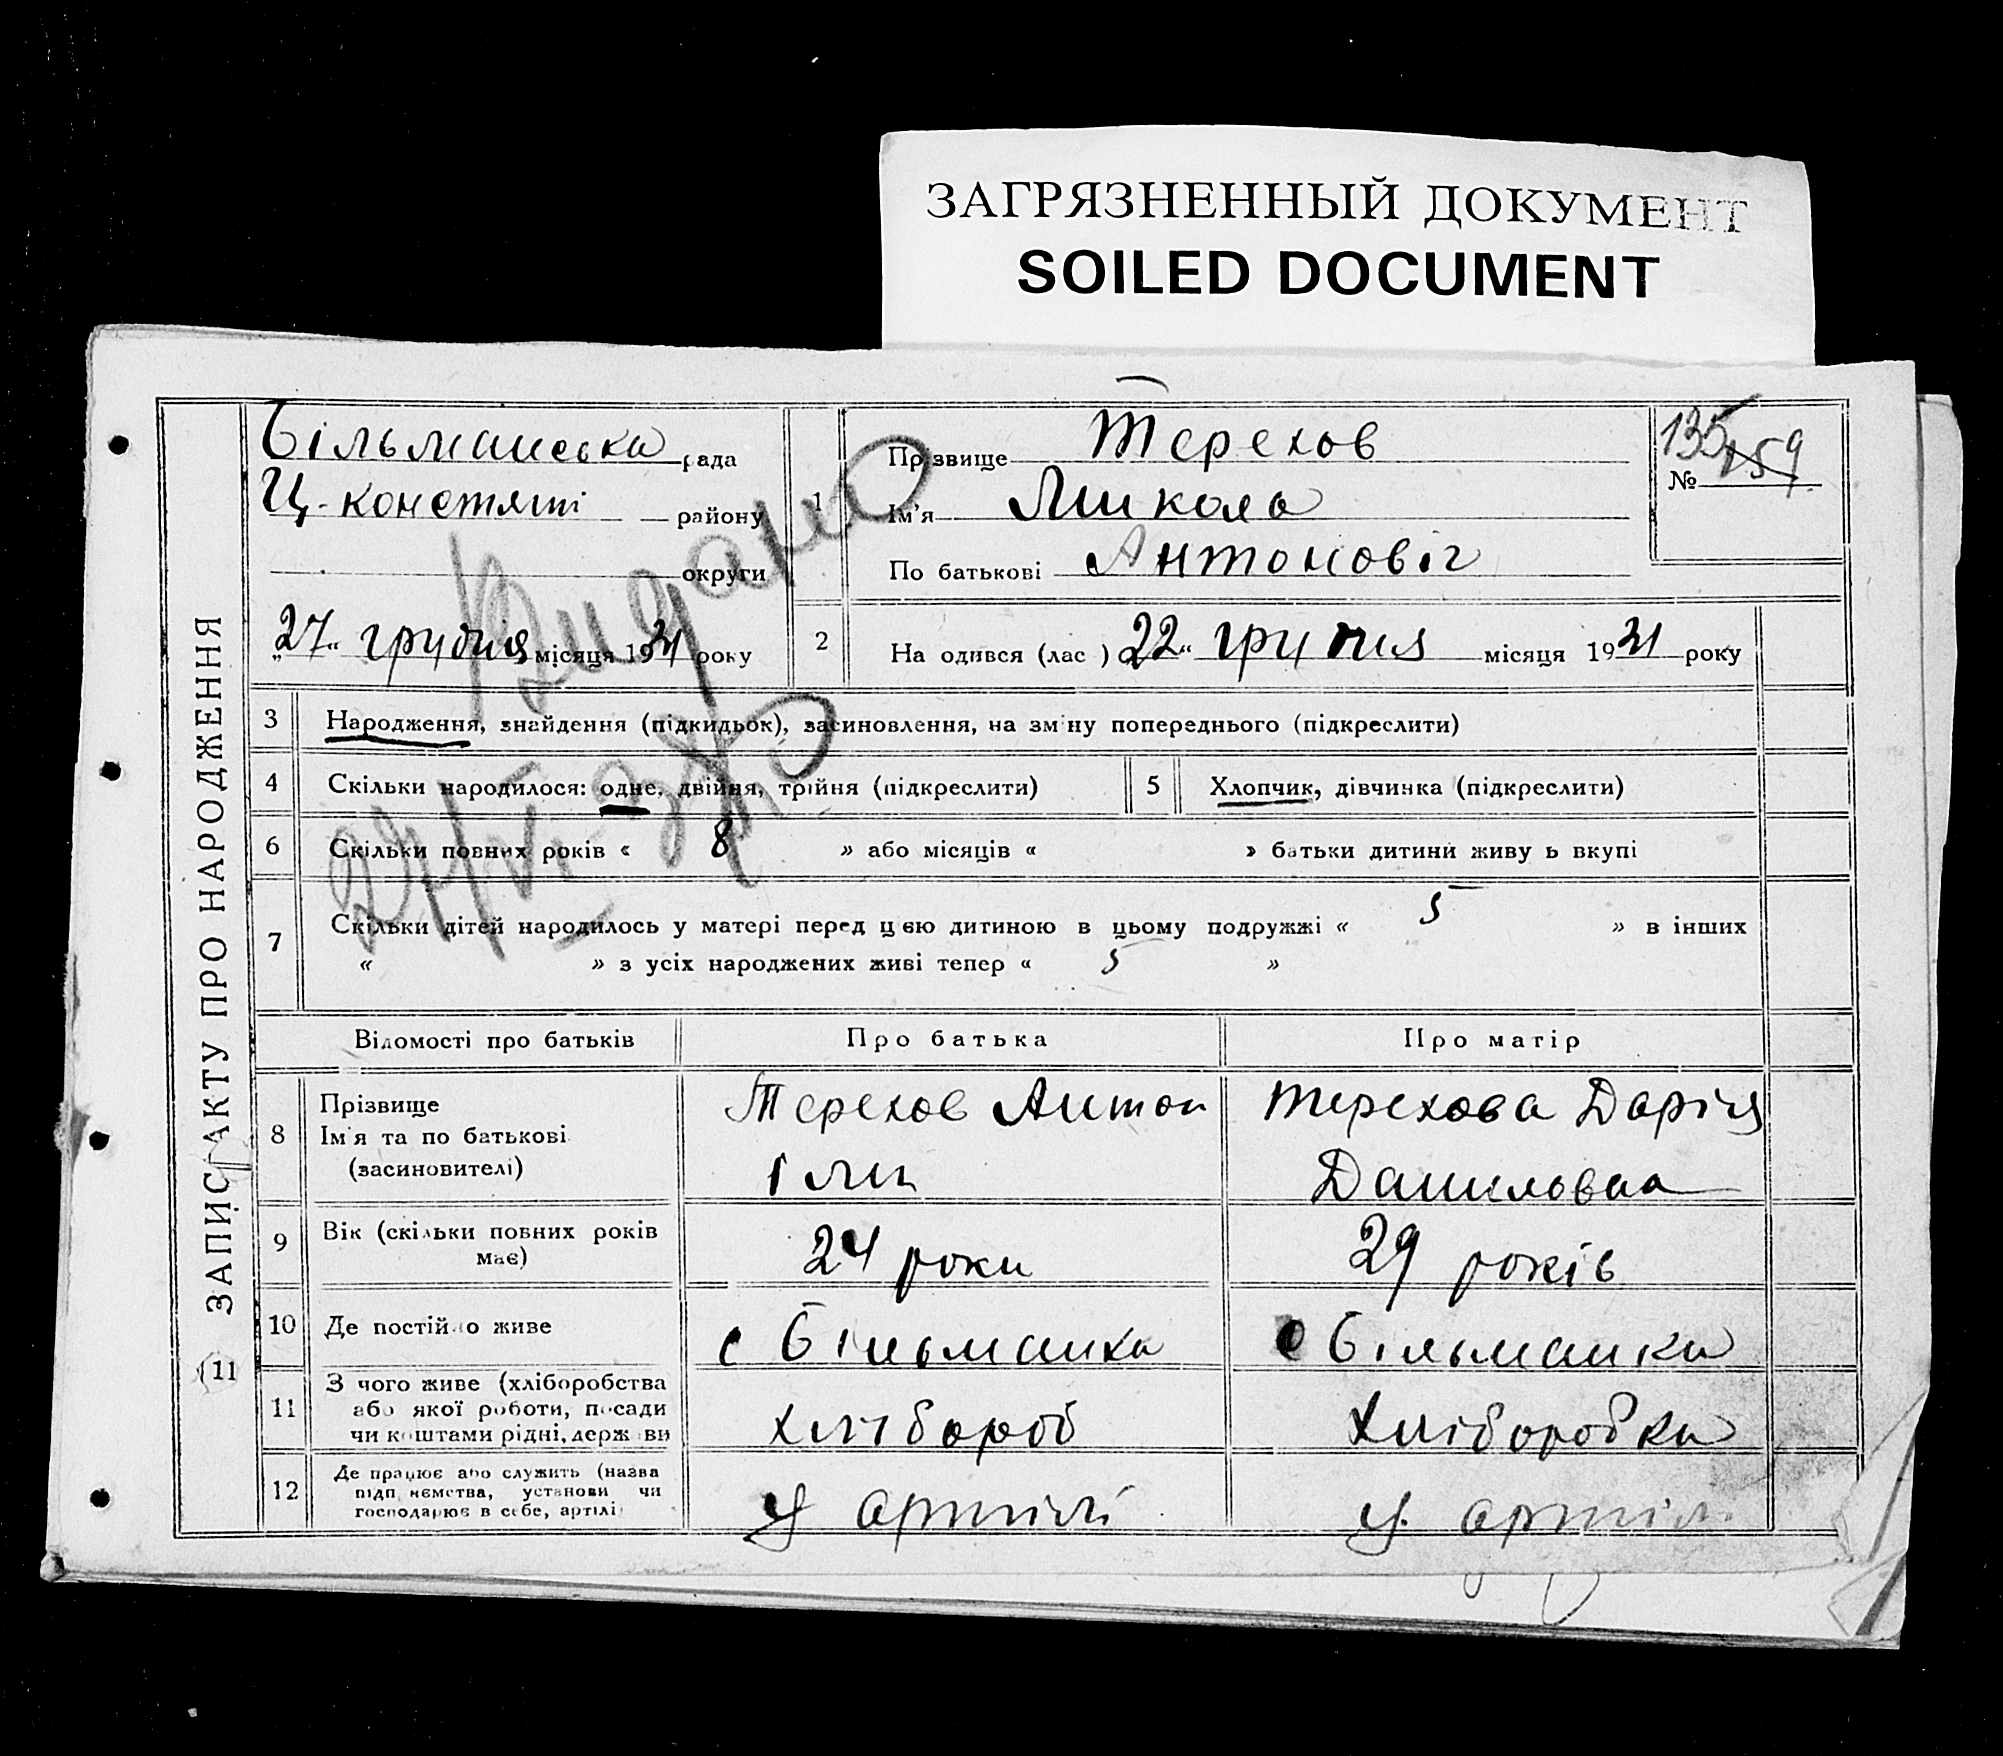 ЗАГРЯЗНЕННЫЙ ДОКУМЕНТ
SOILED DOCUMENT
ЗАПИС АКТУ ПРО НАРОДЖЕННЯ
(11
Більманська рада
Ц-констянт району
округи
„27“ грудня місяця 1931 року
1
Прізвище Терехов
Ім'я Микола
По батькові Антоновіч
135 159
№
2
На одився (лас ) 22“ грудня місяця 1931 року
Видано
3 Народження, знайдення (підкидьок), засиновлення, на зміну попереднього (підкреслити)
4 Скільки народилося: одне, двійня, трійня (підкреслити) 5 Хлопчик, дівчинка (підкреслити)
6 Скільки повних років « 8 » або місяців « » батьки дитини живу ь вкупі
7 Скільки дітей народилось у матері перед цією дитиною в цьому подружжі « 5 » в інших
« » з усіх народжених живі тепер « 5 »
Відомості про батьків Про батька Про матір
8 Прізвище
Ім'я та по батькові
(засиновителі)
Терехов Антон
Терехова Дарія
Даниловна
9 Вік (скільки повних років
має)
24 роки 29 років
10 Де постійно живе с Більманка с Більманка
11 З чого живе (хліборобства
або якої роботи, посади
чи коштами рідні, держ ви
хлібороб хліборобка
12 Де працює або служить (назва
підп ємства, установи чи
господарює в себе, артілі
у артілі у артілі